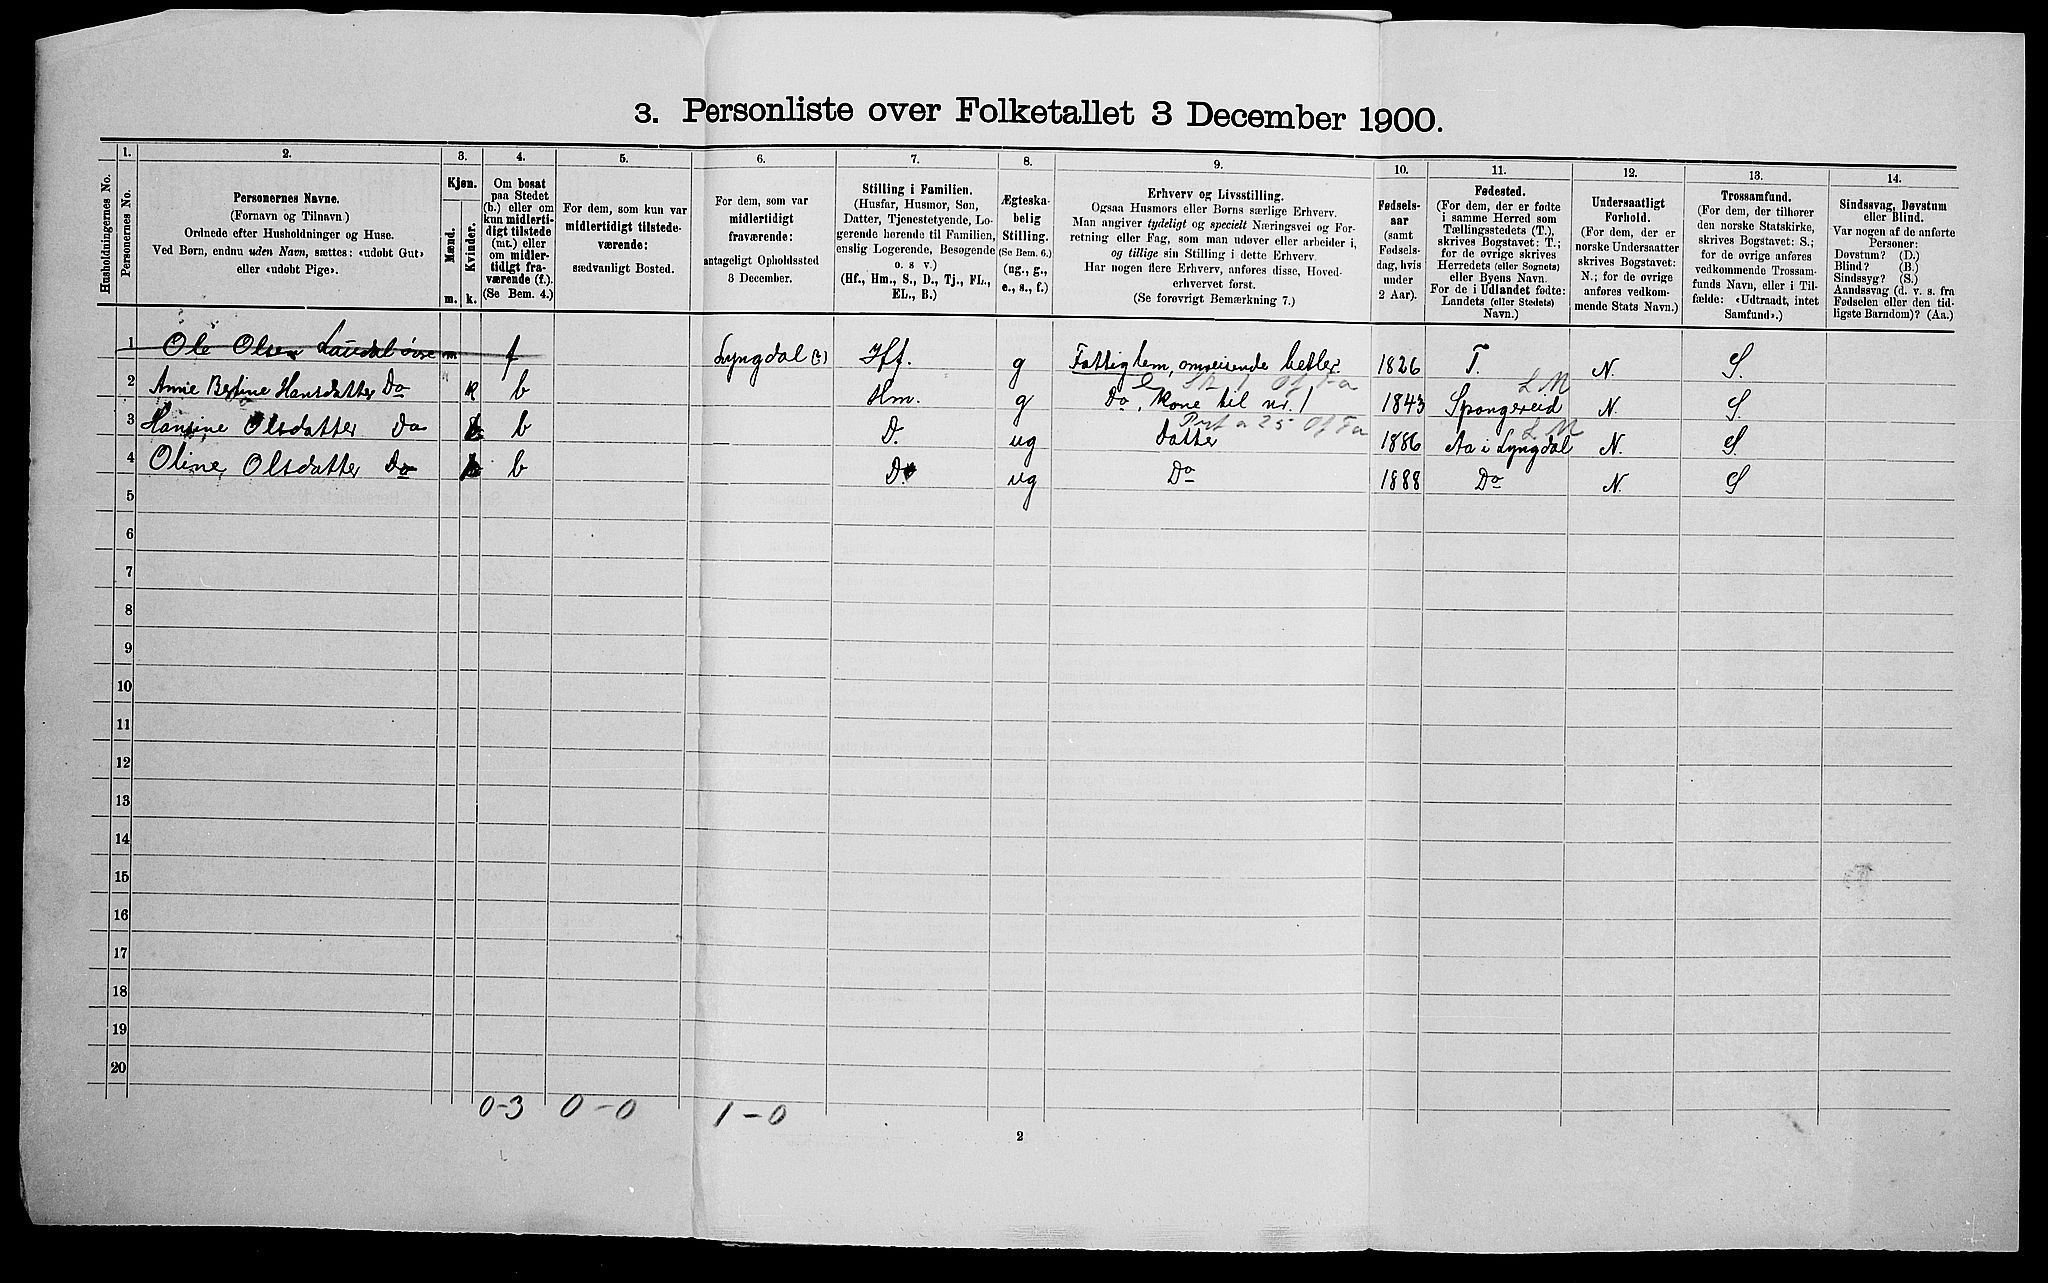 3. Personliste over Folketallet 3 December 1900.
Husholdningernes No.
1.
Personernes No.
2.
Personernes Navne.
(Fornavn og Tilnavn.)
Ordnede efter Husholdninger og Huse.
Ved Børn, endnu uden Navn, sættes: «udøbt Gut»
eller «udøbt Pige».
3.
Kjøn.
Mænd.
Kvinder.
m.
k.
4.
Om bosat
paa Stedet
(b.) eller om
kun midlerti-
digt tilstede
(mt.) eller
om midler-
tidigt fra-
værende (f.).
(Se Bem. 4.)
5.
For dem, som kun var
midlertidigt tilstede-
værende:
sædvanligt Bosted.
6.
For dem, som var
midlertidigt
fraværende:
antageligt Opholdssted
3 December.
7.
Stilling i Familien.
(Husfar, Husmor, Søn,
Datter, Tjenestetyende, Lo-
gerende hørende til Familien,
enslig Logerende, Besøgende
o. s v.)
(Hf., Hm., S., D., Tj., FL.,
EL., B.)
8.
Ægteska-
belig
Stilling.
(Se Bem. 6.)
(ug., g.,
e., s., f.)
9.
Erhverv og Livsstilling.
Ogsaa Husmors eller Børns særlige Erhverv.
Man angiver tydeligt og specielt Næringsvei og For-
retning eller Fag, som man udøver eller arbeider i,
og tillige sin Stilling i dette Erhverv.
Har nogen flere Erhverv, anføres disse, Hoved-
erhvervet først.
(Se forøvrigt Bemærkning 7.)
10.
Fødsels-
aar
(samt
Fødsels-
dag, hvis
under
2 Aar).
11.
Fødested.
(For dem, der er fødte
i samme Herred som
Tællingsstedets (T.),
skrives Bogstavet: T.;
for de øvrige skrives
Herredets (eller Sognets)
eller Byens Navn.
For de i Udlandet fødte:
Landets (eller Stedets)
Navn.)
12.
Undersaatligt
Forhold.
(For dem, der er
norske Undersaatter
skrives Bogstavet:
N.; for de øvrige
anføres vedkom-
mende Stats Navn.)
13.
Trossamfund.
(For dem, der tilhører
den norske Statskirke,
skrives Bogstavet: S.;
for de øvrige anføres
vedkommende Trossam-
funds Navn, eller i Til-
fælde: «Udtraadt, intet
Samfund».)
14.
Sindssvag, Døvstum
eller Blind.
Var nogen af de anførte
Personer:
Døvstum? (D.)
Blind? (B.)
Sindssyg? (S.)
Aandssvag (d. v. s. fra
Fødselen eller den tid-
ligste Barndom)? (Aa.)
1 Ole Olsen Laudal øvre m f Lyngdal (?) Hf. g Fattiglem, omreisende betler 1826 T. N. S.
L M
2 Anne Bertine Hansdatter Do k b Hm. g Do, Kone til nr. 1 1843 Spangereid N. S.
L M
3 Hansine Olsdatter Do k b D. ug datter 1886 Aa i Lyngdal N. S.
4 Oline Olsdatter Do k b D. ug Do 1888 Do N. S
5
6
7
8
9
10
11
12
13
14
15
16
17
18
19
20
0-3 0-0 1-0
2